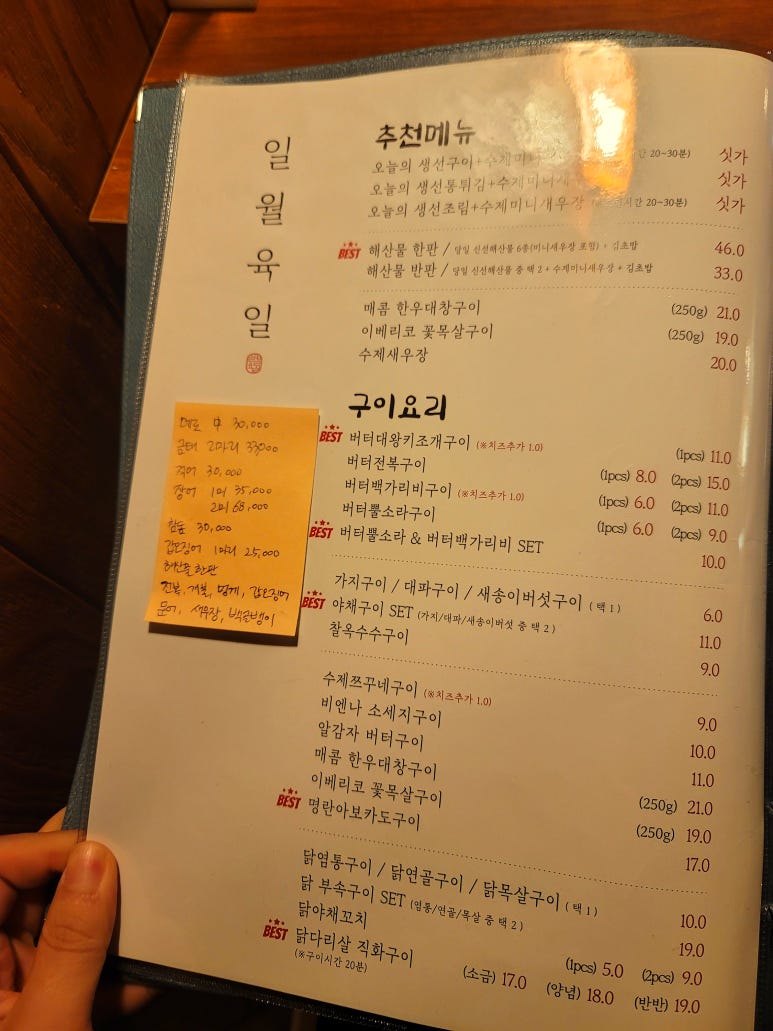 일월육일
추천메뉴
오늘의 생선구이+수제미니 20~30분) 싯가
오늘의 생선통튀김+수제미니새우 싯가
오늘의 생선조림+수제미니새우장 20~30분) 싯가
BEST 해산물 한판 / 당일 신선해산물 6종(미니새우장 포함) + 김초밥 46.0
해산물 반판 / 당일 신선해산물 중 택 2 + 수제미니새우장 + 김초밥 33.0
매콤 한우대창구이 (250g) 21.0
이베리코 꽃목살구이 (250g) 19.0
수제새우장 20.0
구이요리
BEST 버터대왕키조개구이 (※치즈추가 1.0) (1pcs) 11.0
버터전복구이 (1pcs) 8.0 (2pcs) 15.0
버터백가리비구이 (※치즈추가 1.0) (1pcs) 6.0 (2pcs) 11.0
버터뿔소라구이 (1pcs) 6.0 (2pcs) 9.0
BEST 버터뿔소라 & 버터백가리비 SET 10.0
가지구이 / 대파구이 / 새송이버섯구이 ( 택 1 ) 6.0
BEST 야채구이 SET (가지/대파/새송이버섯 중 택 2 ) 11.0
찰옥수수구이 9.0
수제쯔꾸네구이 (※치즈추가 1.0) 9.0
비엔나 소세지구이 10.0
알감자 버터구이 11.0
매콤 한우대창구이 (250g) 21.0
이베리코 꽃목살구이 (250g) 19.0
BEST 명란아보카도구이 17.0
닭염통구이 / 닭연골구이 / 닭목살구이 ( 택 1 ) 10.0
닭 부속구이 SET (염통/연골/목살 중 택 2 ) 19.0
닭야채꼬치 (1pcs) 5.0 (2pcs) 9.0
BEST 닭다리살 직화구이 (소금) 17.0 (양념) 18.0 (반반) 19.0
(※구이시간 20분)
메로 中 30,000
군터 2마리 33000
적어 30,000
장어 1미 35,000
2미 68,000
참돔 30,000
갑오징어 1마리 25,000
해산물 한판
전복, 개불, 멍게, 갑오징어
문어, 새우장, 백골뱅이